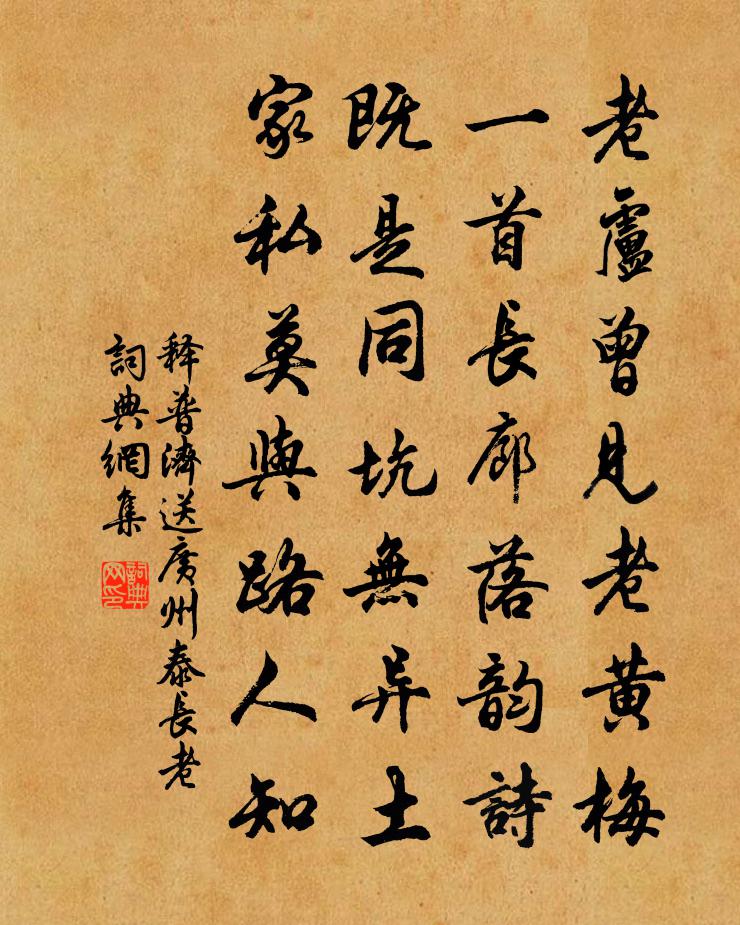 老盧曾見老黃梅
一首長廊落韵詩
既是同坑無异土
家私莫與路人知
释普濟送廣州泰長老
詞典網集
詞典网印